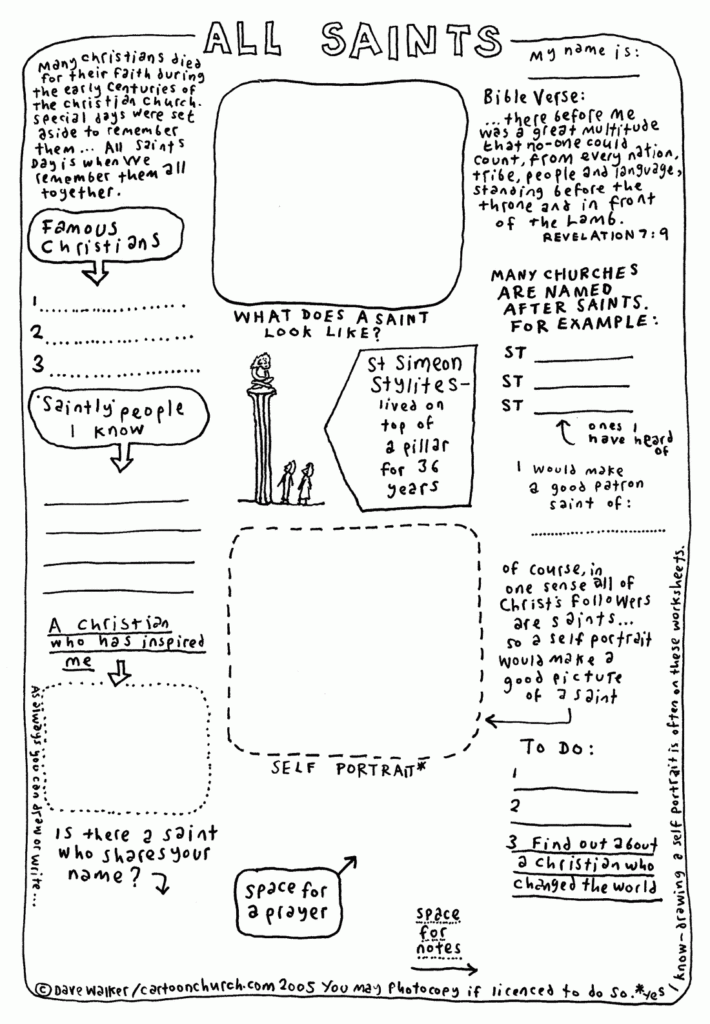 ALL SAINTS
Many Christians died
for their faith during
the early centuries of
the Christian Church.
Special days were set
aside to remember
them... All Saints
Day is when we
remember them all
together.
Famous
Christians
1 ....................
2 ....................
3 ....................
'Saintly' people
I know
A Christian
who has inspired
me
As always you can draw or write...
Is there a saint
who shares your
name?
WHAT DOES A SAINT
LOOK LIKE?
St Simeon
Stylites-
lived on
top of
a pillar
for 36
years
SELF PORTRAIT*
space for
a prayer
space
for
notes
My name is:
Bible Verse:
...there before me
was a great multitude
that no-one could
count, from every nation,
tribe, people and language,
standing before the
throne and in front
of the Lamb.
REVELATION 7:9
MANY CHURCHES
ARE NAMED
AFTER SAINTS.
FOR EXAMPLE:
ST
ST
ST
ones I
have heard
of
I would make
a good patron
saint of:
....................
Of course, in
one sense all of
Christ's followers
are saints...
so a self portrait
would make a
good picture
of a saint
TO DO:
1
2
3 Find out about
a Christian who
changed the world
© Dave Walker/cartoonchurch.com 2005 You may photocopy if licenced to do so. *Yes
I know-drawing a self portrait is often on these worksheets.